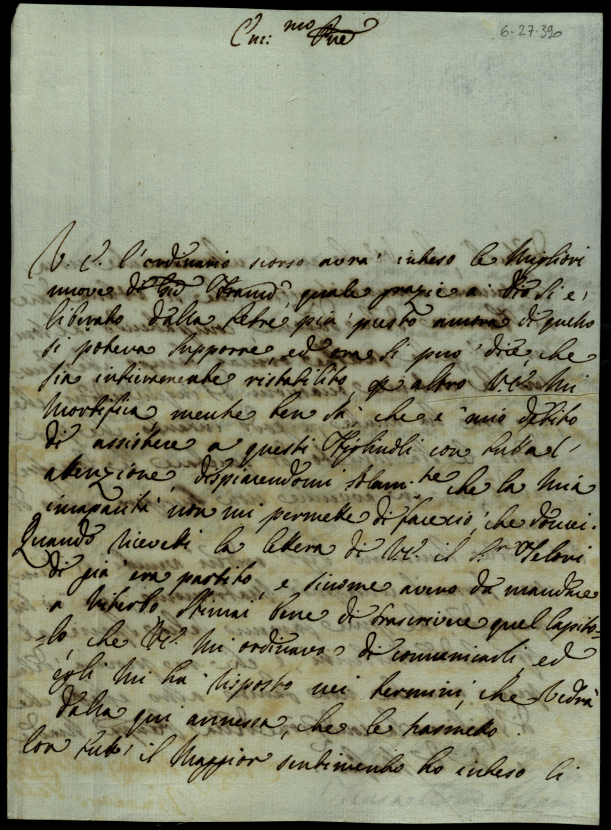 6-27-390
V. E. l'ordinario scorso avrà inteso le Migliori
nuove di quale grazie a Dio si è
liberato dalla febre più presto ancora di quello
si poteva supporre, ed ora si può dire, che
sia intieramente ristabilito, altro V. E. Mi
Mortifica mentre ben sà, che è mio debito
di assistere a questi con tutta l'
attenzione, dispiacendomi solam.te che la Mia
incapacità non mi permette di fare ciò che dovrei.
Quando ricevei la lettera di V.E. il S.r
di già era partito, e siccome avevo da mandare
a Viterbo stimai bene di trascrivere quel Capito-
-lo, che V.E. Mi ordinava di comunicarli, ed
egli Mi ha risposto nei termini, che vedrà
dalla qui annessa, che le trasmetto.
Con tutto il Maggior sentimento ho inteso li